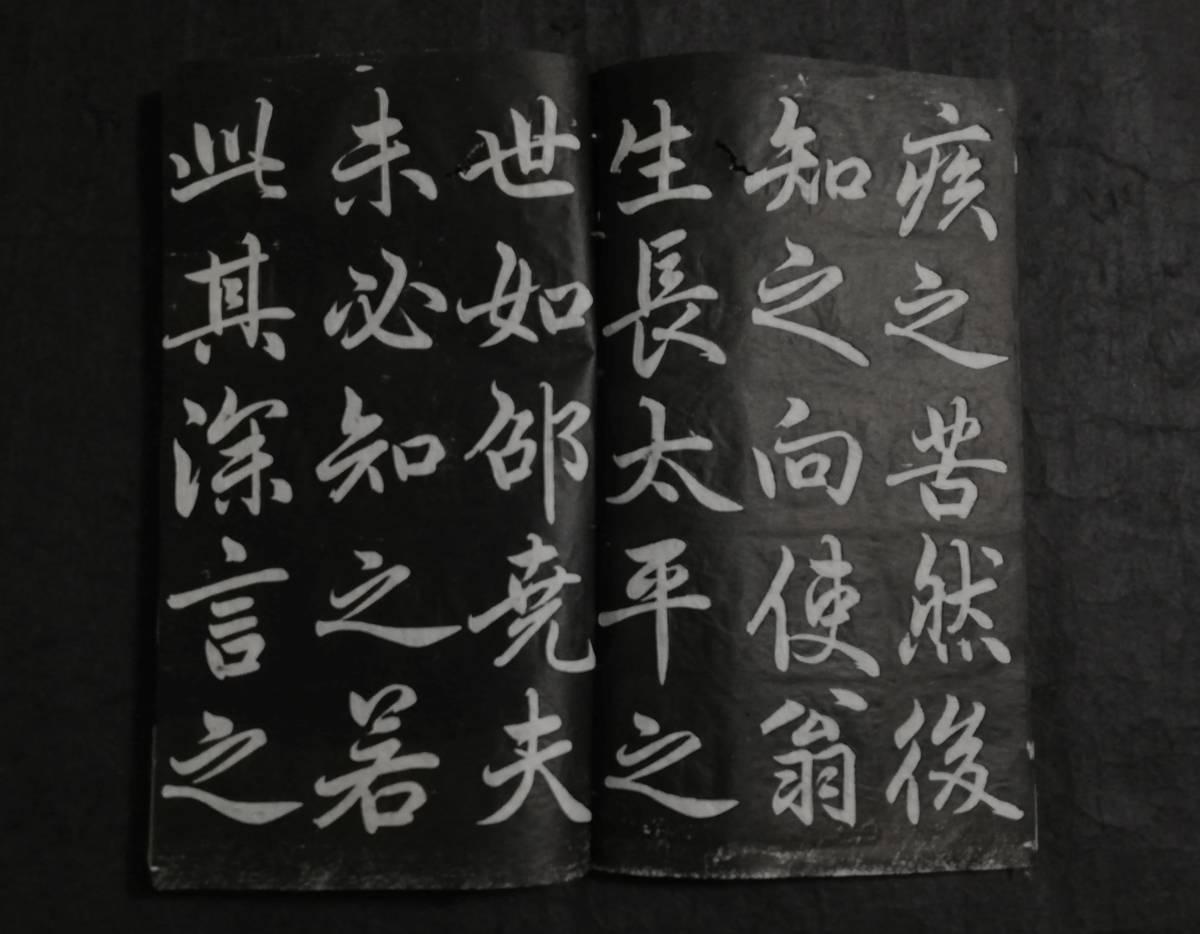 疾之苦然後
知之向使翁
生長太平之
世如邵尭夫
未必知之若
此其深言之